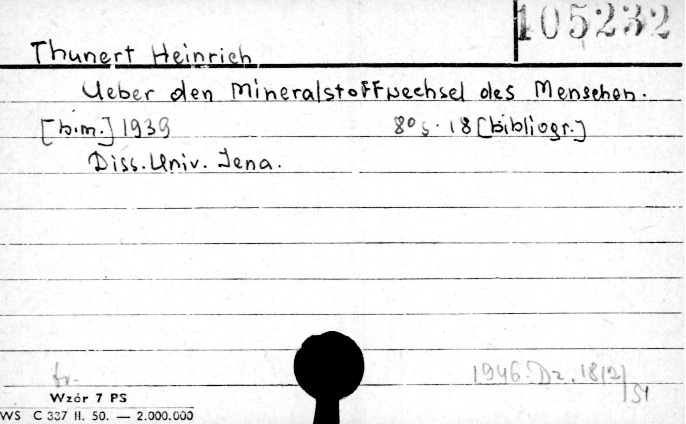 105232
Thunert Heinrich
Ueber den Mineralstoffwechsel des Menschen.
[b.m.] 1939 8° s. 18 [bibliogr.]
Diss. Univ. Jena.
fr. 1946. Dz. 1812/51
Wzór 7 PS
WS C 337 II. 50. — 2.000.000